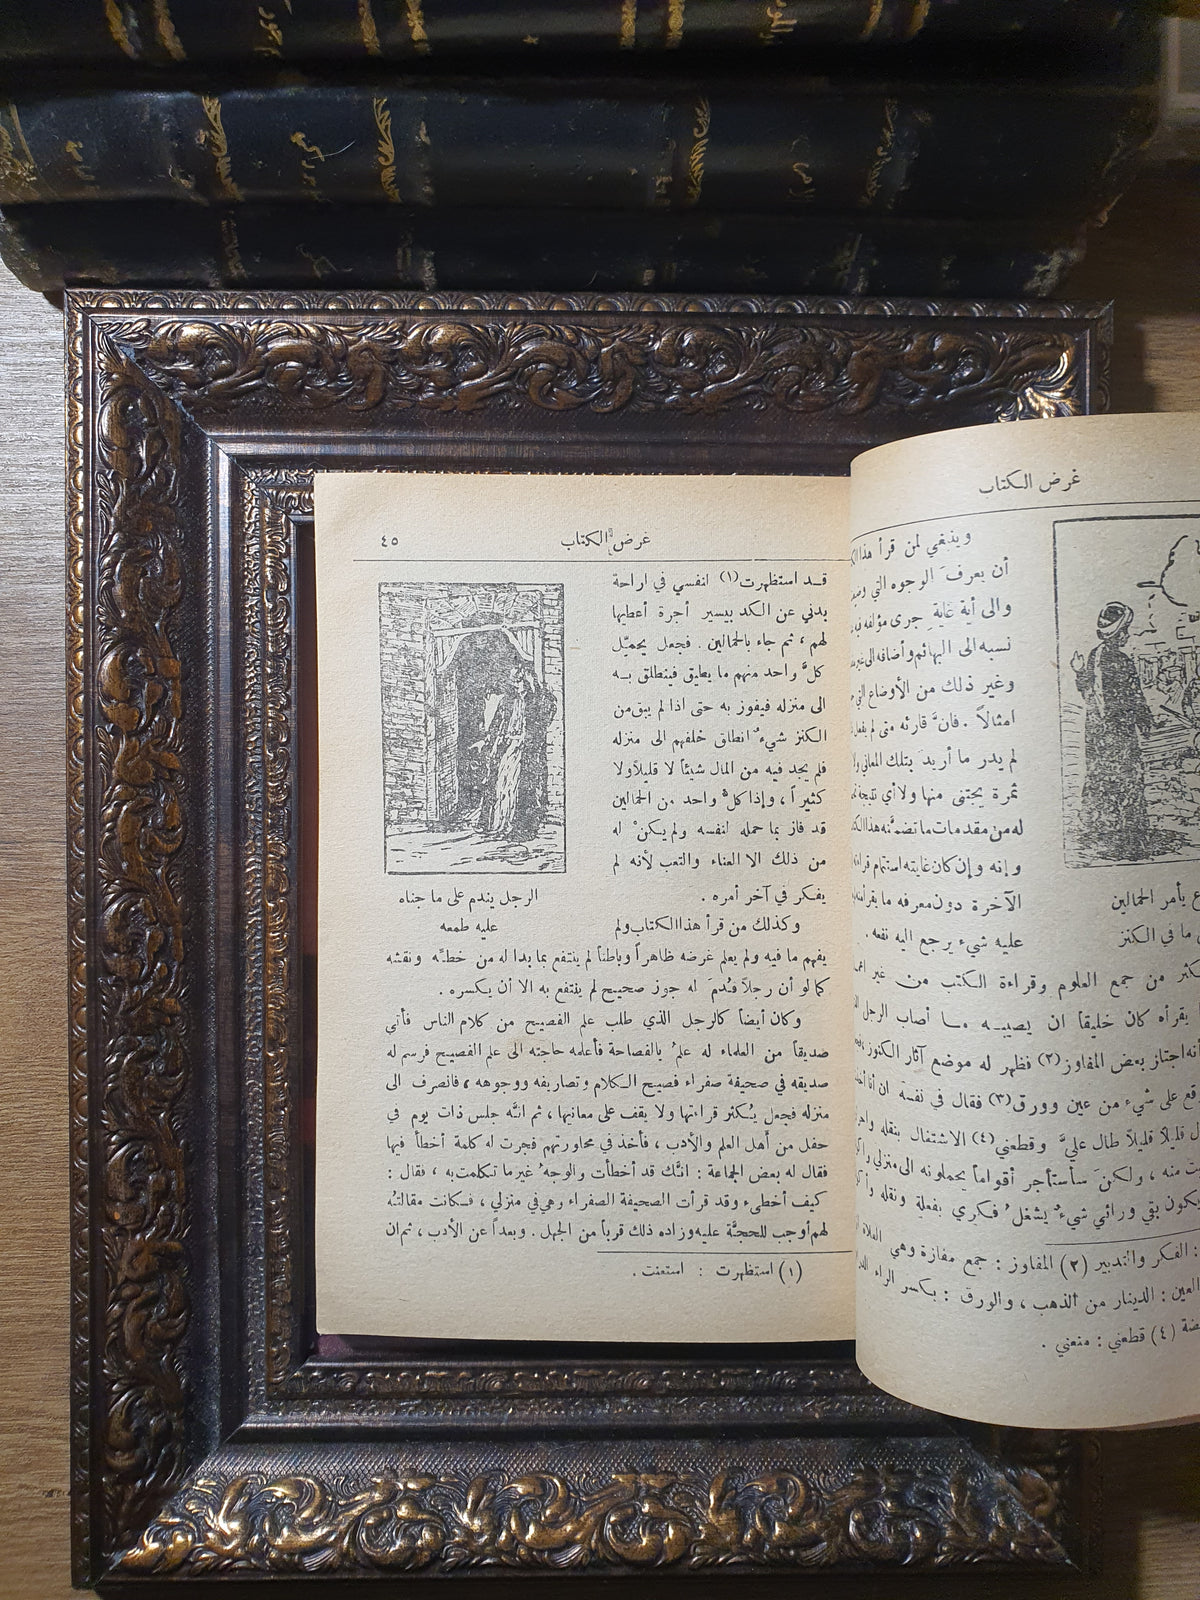 غرض الكتاب
وينبغي لمن قرأ هذا
أن يعرف الوجوه التي
والى أية غاية جرى مؤلفه
نسبه الى البهائم وأضافه الى غير
وغير ذلك من الأوضاع التي
امثالاً. فانَّ قارئه متى لم يفعل
لم يدر ما أريد بتلك المعاني
ثمرة يجتنى منها ولا أي نتيجة
له من مقدمات ما تضمَّنه هذا
وإنه وإن كان غايته استتمام
الآخرة دون معرفه ما يقرأ
عليه شيء يرجع اليه نفعه.
يأمر الحمالين
ما في الكنز
من جمع العلوم وقراءة الكتب من غير
يقرأه كان خليقاً ان يصيبه ما أصاب الرجل
اجتاز بعض المفاوز (٢) فظهر له موضع آثار الكنوز
على شيء من عين وورق (٣) فقال في نفسه ان أنا
قليلاً قليلاً طال عليَّ وقطعني (٤) الاشتغال بنقله
منه، ولكن سأستأجر أقواماً يحملونه الى منزلي
يكون بقي ورائي شيءٌ يشغلُ فكري بفعله ونقله
: الفكر والتدبير (٢) المفاوز : جمع مفازة وهي الفلاة
العين : الدينار من الذهب، والورق : بكسر الراء
(٤) قطعني : منعني.
غرض الكتاب ٤٥
قد استظهرت (١) لنفسي في اراحة
بدني عن الكد بيسير أجرة أعطيها
لهم، ثم جاء بالحمالين. فجعل يحمِّل
كلَّ واحد منهم ما يطيق فينطلق به
الى منزله فيفوز به حتى اذا لم يبق من
الكنز شيءٌ انطلق خلفهم الى منزله
فلم يجد فيه من المال شيئاً لا قليلاً ولا
كثيراً، وإذا كلُّ واحد من الحمالين
قد فاز بما حمله لنفسه ولم يكنْ له
من ذلك الا العناء والتعب لأنه لم
يفكر في آخر أمره.
الرجل يندم على ما جناه
عليه طمعه
وكذلك من قرأ هذا الكتاب ولم
يفهم ما فيه ولم يعلم غرضه ظاهراً وباطناً لم ينتفع بما بدا له من خطه ونقشه
كما لو أن رجلاً قُدمَ له جوز صحيح لم ينتفع به الا أن يكسره.
وكان أيضاً كالرجل الذي طلب علم الفصيح من كلام الناس فأتى
صديقاً من العلماء له علمٌ بالفصاحة فأعلمه حاجته الى علم الفصيح فرسم له
صديقه في صحيفة صفراء فصيح الكلام وتصاريفه ووجوهه، فانصرف الى
منزله فجعل يُكثر قراءتها ولا يقف على معانيها، ثم انَّه جلس ذات يوم في
حفل من أهل العلم والأدب، فأخذ في محاورتهم فجرت له كلمة أخطأ فيها
فقال له بعض الجماعة : انَّك قد أخطأت والوجهُ غير ما تكلمت به، فقال :
كيف أخطىء وقد قرأت الصحيفة الصفراء وهي في منزلي، فكانت مقالتُه
لهم أوجب للحجَّة عليه وزاده ذلك قرباً من الجهل. وبعداً عن الأدب، ثم ان
(١) استظهرت : استعنت.